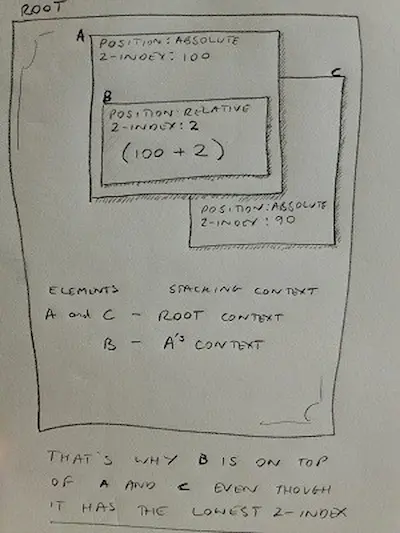 ROOT
A
POSITION: ABSOLUTE
Z-INDEX: 100
C
B
POSITION: RELATIVE
Z-INDEX: 2
(100 + 2)
POSITION: ABSOLUTE
Z-INDEX: 90
ELEMENTS STACKING CONTEXT
A and C - ROOT CONTEXT
B - A'S CONTEXT
THAT'S WHY B IS ON TOP
OF A AND C EVEN THOUGH
IT HAS THE LOWEST Z-INDEX